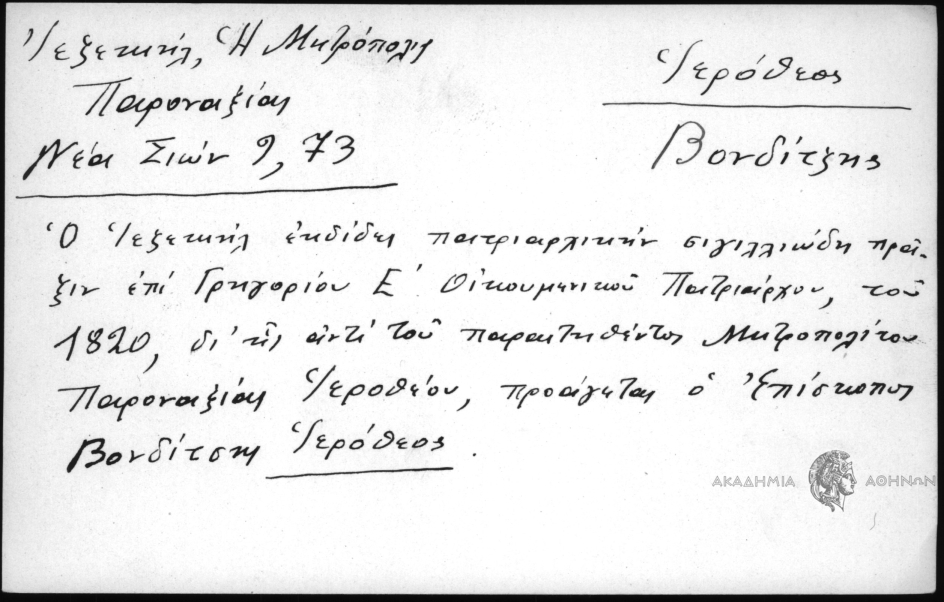 Ἰεζεκιήλ, Ἡ Μητρόπολις
Παροναξίας
Νέα Σιών 9, 73
Ἱερόθεος
Βονδίτζης
Ὁ Ἰεζεκιήλ ἐκδίδει πατριαρχικήν σιγιλλιώδη πρᾶ-
ξιν ἐπί Γρηγορίου Ε΄ Οἰκουμενικοῦ Πατριάρχου, τοῦ
1820, δι' ἧς ἀντί τοῦ παραιτηθέντος Μητροπολίτου
Παροναξίας Ἱεροθέου, προάγεται ὁ Ἐπίσκοπος
Βονδίτσης Ἱερόθεος.
ΑΚΑΔΗΜΙΑ ΑΘΗΝΩΝ